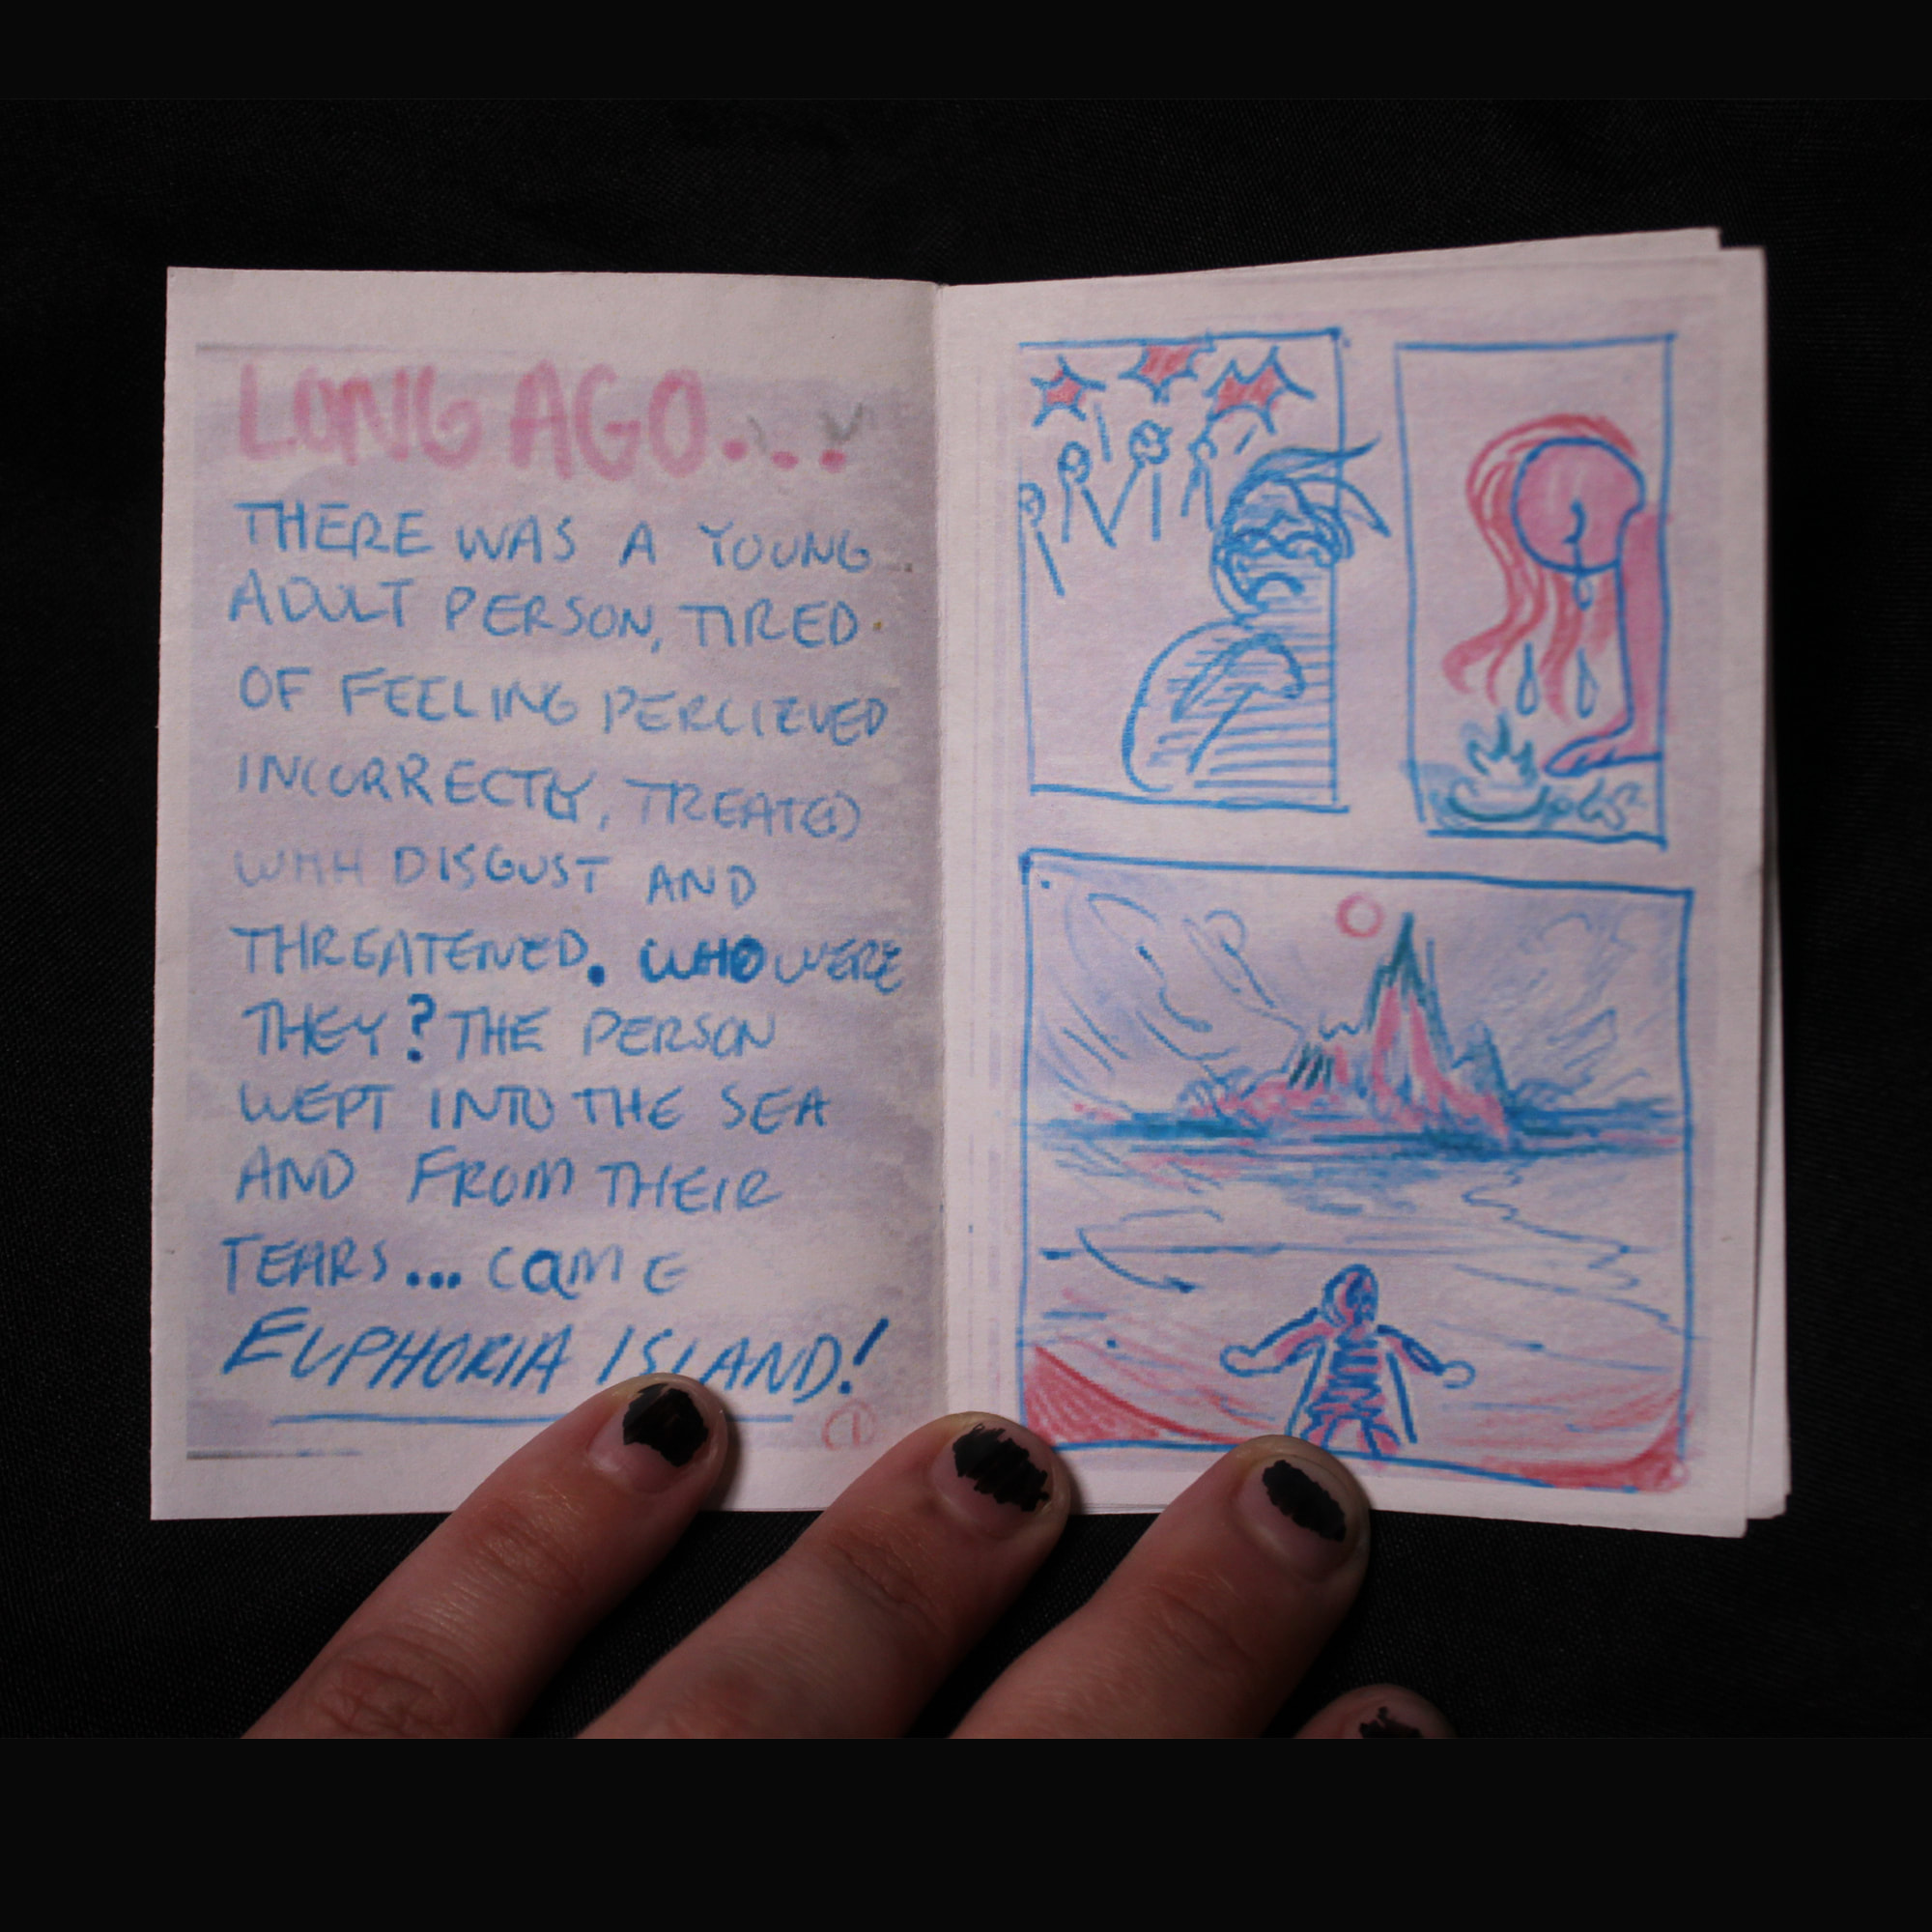 LONG AGO...
THERE WAS A YOUNG
ADULT PERSON, TIRED
OF FEELING PERCIEVED
INCORRECTLY, TREATED
WITH DISGUST AND
THREATENED. WHO WERE
THEY? THE PERSON
WEPT INTO THE SEA
AND FROM THEIR
TEARS... CaME
EUPHORIA ISLAND!
1